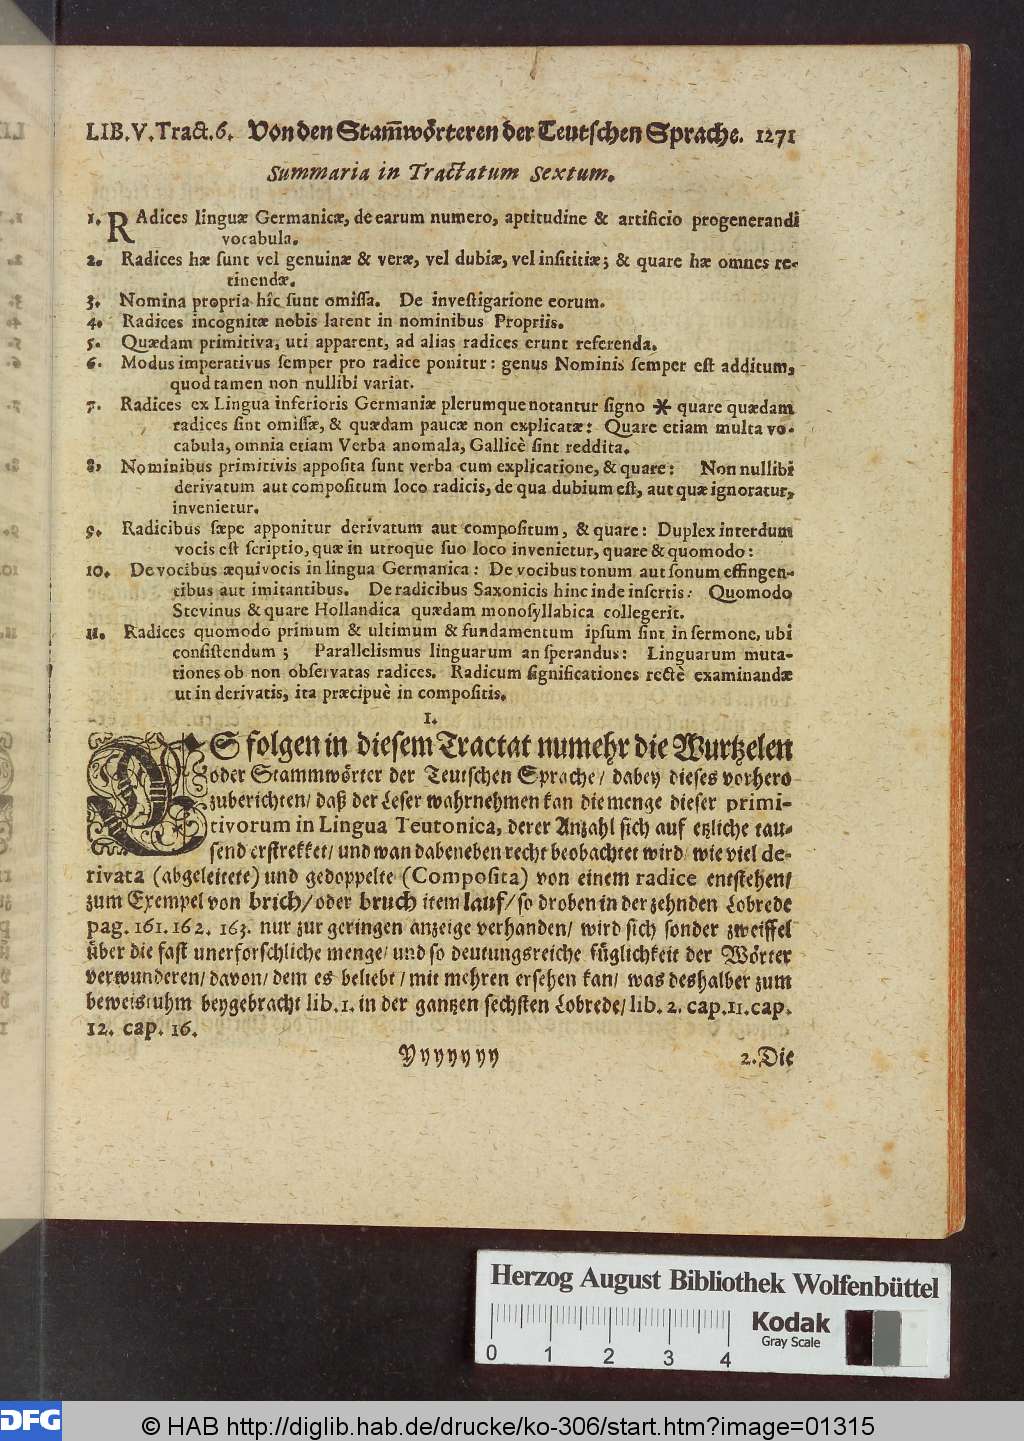 LIB. V. Tract. 6. Von den Stam̃wörteren der Teutschen Sprache. 1271
Summaria in Tractatum Sextum.
1. RAdices linguæ Germanicæ, de earum numero, aptitudine & artificio progenerandi
vocabula.
2. Radices hæ sunt vel genuinæ & veræ, vel dubiæ, vel insititiæ; & quare hæ omnes re-
tinendæ.
3. Nomina propria hîc sunt omissa. De investigatione eorum.
4. Radices incognitæ nobis latent in nominibus Propriis.
5. Quædam primitiva, uti apparent, ad alias radices erunt referenda.
6. Modus imperativus semper pro radice ponitur: genus Nominis semper est additum,
quod tamen non nullibi variat.
7. Radices ex Lingua inferioris Germaniæ plerumque notantur signo * quare quædam
radices sint omissæ, & quædam paucæ non explicatæ: Quare etiam multa vo-
cabula, omnia etiam Verba anomala, Gallicè sint reddita.
8, Nominibus primitivis apposita sunt verba cum explicatione, & quare: Non nullibi
derivatum aut compositum loco radicis, de qua dubium est, aut quæ ignoratur,
invenietur.
9. Radicibus sæpe apponitur derivatum aut compositum, & quare: Duplex interdum
vocis est scriptio, quæ in utroque suo loco invenietur, quare & quomodo:
10. De vocibus æquivocis in lingua Germanica: De vocibus tonum aut sonum effingen-
tibus aut imitantibus. De radicibus Saxonicis hinc inde insertis: Quomodo
Stevinus & quare Hollandica quædam monosyllabica collegerit.
11. Radices quomodo primum & ultimum & fundamentum ipsum sint in sermone, ubi
consistendum; Parallelismus linguarum an sperandus: Linguarum muta-
tiones ob non observatas radices. Radicum significationes rectè examinandæ
ut in derivatis, ita præcipuè in compositis.
1.
ES folgen in diesem Tractat numehr die Wurtzelen
oder Stammwörter der Teutschen Sprache/ dabey dieses vorhero
zuberichten/ daß der Leser wahrnehmen kan die menge dieser primi-
tivorum in Lingua Teutonica, derer Anzahl sich auf etzliche tau-
send erstrekket/ und wan dabeneben recht beobachtet wird/ wie viel de-
rivata (abgeleitete) und gedoppelte (Composita) von einem radice entstehen/
zum Exempel von brich/ oder bruch item lauf/ so droben in der zehnden Lobrede
pag. 161. 162. 163. nur zur geringen anzeige verhanden/ wird sich sonder zweiffel
über die fast unerforschliche menge/ und so deutungsreiche füglichkeit der Wörter
verwunderen/ davon/ dem es beliebt/ mit mehren ersehen kan/ was deshalber zum
beweistuhm beygebracht lib. 1. in der gantzen sechsten Lobrede/ lib. 2. cap. 11. cap.
12. cap. 16.
Yyyyyyy 2. Die
Herzog August Bibliothek Wolfenbüttel
Kodak
Gray Scale
0 1 2 3 4
DFG © HAB http://diglib.hab.de/drucke/ko-306/start.htm?image=01315